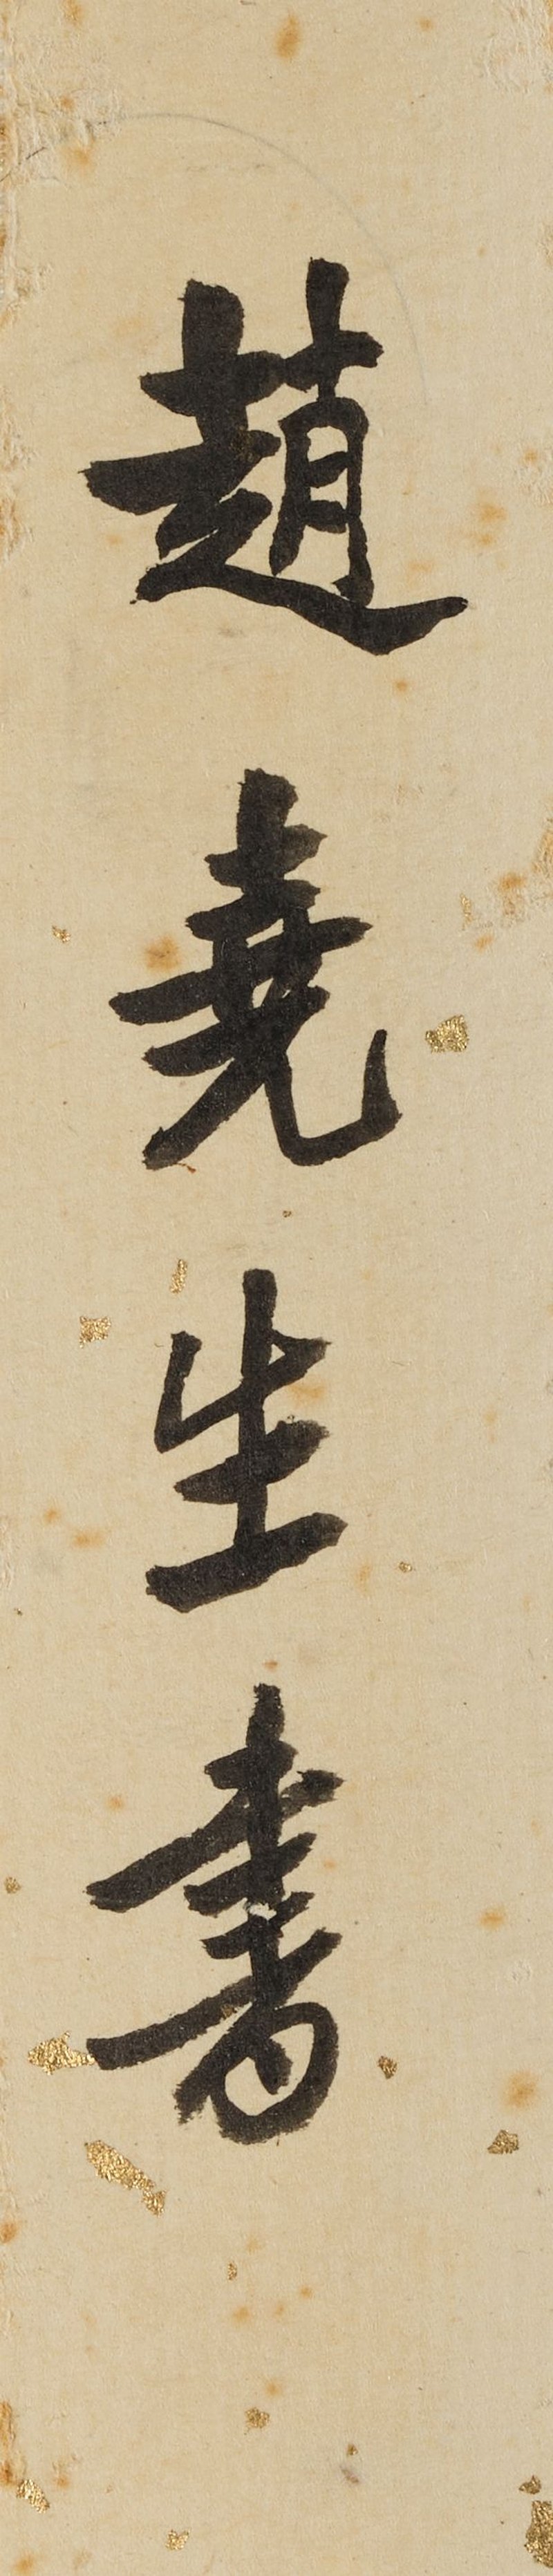 趙堯生書